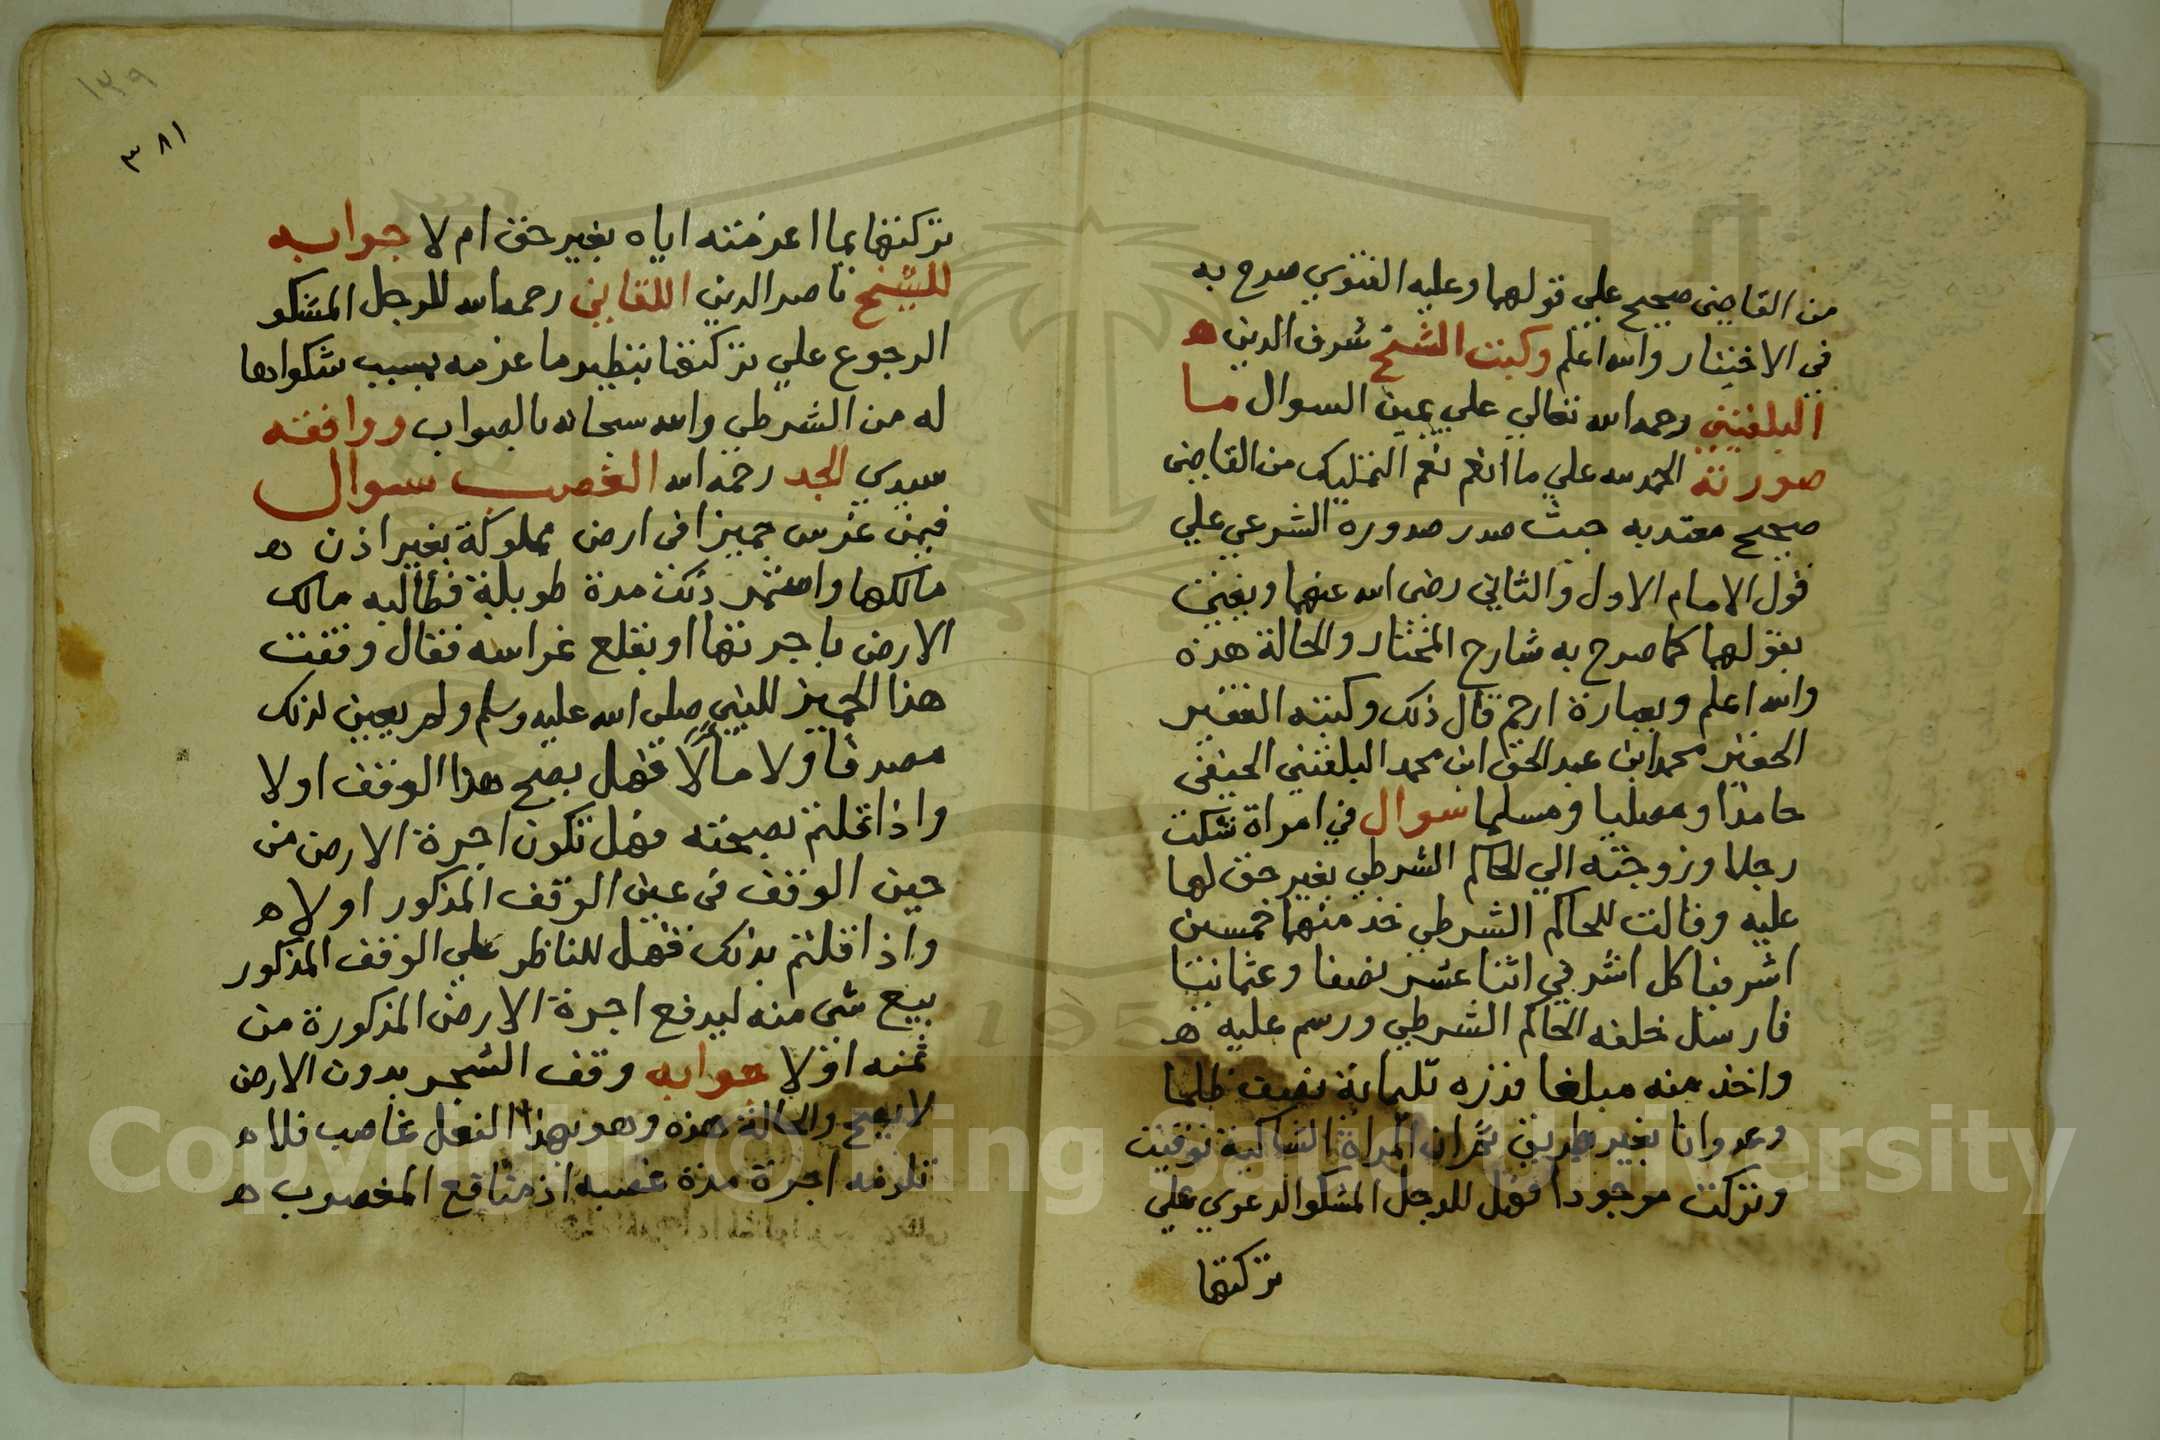 من القاضي صحيح علي قولهما وعليه الفتوي صرح به
في الاختيار والله اعلم وكتب الشيخ شرف الدين ه
البلقيني رحمه الله تعالي علي عين السوال ما
صورته الحمد لله علي ما انعم نعم التمليك من القاضي
صحيح معتد به حيث صدر صدوره الشرعي علي
قول الامام الاول والثاني رضي الله عنهما ويفتي
بقولهما كما صرح به شارح المختار والحالة هذه
والله اعلم وبعبارة ارحم قال ذلك وكتبه الفقير
الحقير محمد ابن عبد الحق ابن محمد البلقيني الحنفي
حامدا ومصليا ومسلما سوال في امراة شكت
رجلا وزوجته الي الحاكم الشرطي بغير حق لها
عليه وقالت للحاكم الشرطي خذ منهما خمسين
اشرفيا كل اشرفي اثنا عشر نصفا وعثمانيا
فارسل خلفه الحاكم الشرطي ورسم عليه ه
واخذ منه مبلغا قدره ثلثمائة نصف ظلما
وعدوانا بغير طريق ثم ان المراة الشاكية توفيت
وتركت موجودا فهل للرجل المشكو الدعوي علي
تركتها
١٣٩
٣٨١
تركتها بما اغرمته اياه بغير حق ام لا جوابه
للشيخ ناصر الدين اللقاني رحمه الله للرجل المشكو
الرجوع علي تركتها بنظير ما غرمه بسبب شكواها
له من الشرطي والله سبحانه بالصواب ووافقه
سيدي الجد رحمه الله الغصب سوال
فيمن غرس جميزا في ارض مملوكة بغير اذن ه
مالكها واستمر ذلك مدة طويلة فطالبه مالك
الارض باجرتها او بقلع غراسه فقال وقفت
هذا الجميز للنبي صلي الله عليه وسلم ولم يعين لذلك
مصرفا ولا مآلا فهل يصح هذا الوقف اولا
واذا قلتم بصحته فهل تكون اجرة الارض من
حين الوقف في عين الوقف المذكور اولا ه
واذا قلتم بذلك فهل للناظر علي الوقف المذكور
بيع شي منه ليدفع اجرة الارض المذكورة من
ثمنه اولا جوابه وقف الشجر بدون الارض
لا يصح والحالة هذه وهو بهذا الفعل غاصب فلا ه
تلزمه اجرة مدة غصبه اذ منافع المغصوب ه
Copyright © King Saud University